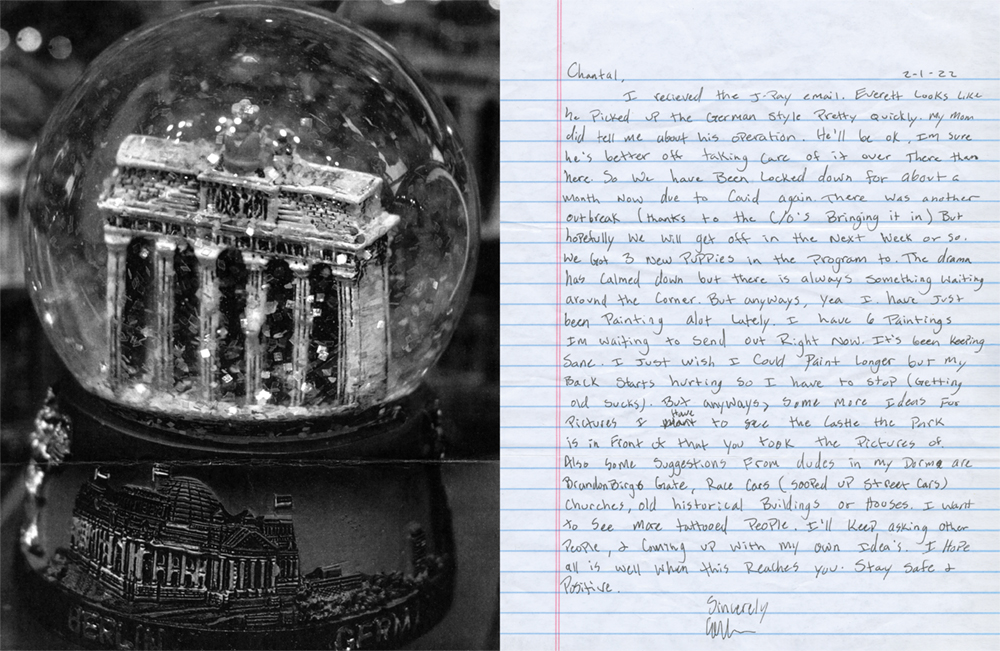 BERLIN
GERM
Chantal,
2-1-22
I recieved the J-Pay email. Everett Looks Like
he Picked up the German Style Pretty quickly. My Mom
did tell me about his operation. He'll be ok, Im sure
he's better off taking Care of it over There then
here. So We have Been Locked down for about a
Month Now due to Covid again. There was another
outbreak (thanks to the C/O's Bringing it in) But
hopefully We will get off in the Next Week or so.
We Got 3 New Puppies in the Program to. The drama
has Calmed down but there is always Something Waiting
around the Corner. But anyways, Yea I have Just
been Painting alot Lately. I have 6 Paintings
Im waiting to Send out Right Now. It's been keeping
Sane. I Just wish I Could Paint Longer but my
Back Starts hurting So I have to stop (Getting
old Sucks). But anyways, Some More Ideas For
Pictures I Have to see the Castle the Park
is in Front of that you took the Pictures of.
Also Some Suggestions From dudes in my Dorm are
BrandonBirg Gate, Race Cars (Sooped up Street Cars)
Churches, old historical Buildings or Houses. I want
to See More tattooed People. I'll Keep asking other
People, & Coming up with my own Idea's. I Hope
all is well when this Reaches you. Stay Safe &
Positive.
Sincerely